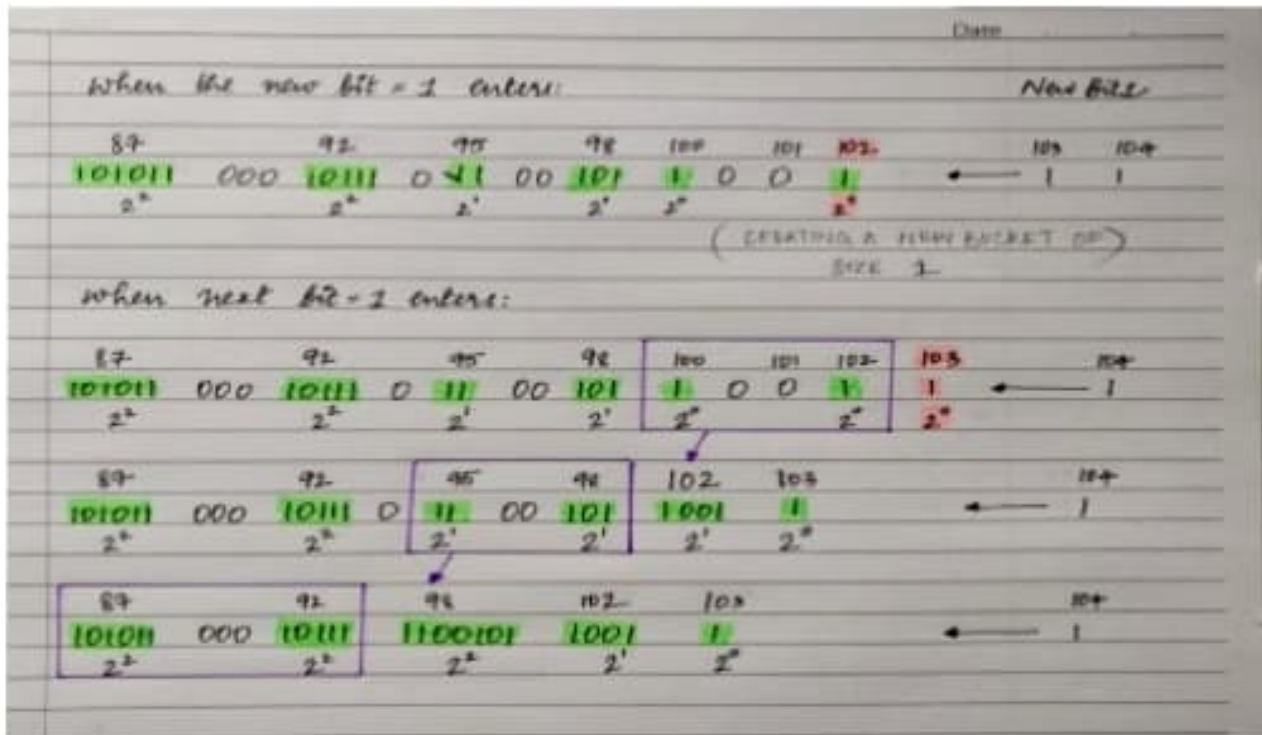 Date
When the new bit = 1 enters: New Bits
87 92 95 98 100 101 102 103 104
101011 000 10111 0 11 00 101 1 0 0 1 ← 1 1
2² 2² 2¹ 2¹ 2⁰ 2⁰
(CREATING A NEW BUCKET OF)
SIZE 1
When next bit = 1 enters:
87 92 95 98 100 101 102 103 104
101011 000 10111 0 11 00 101 1 0 0 1 1 ← 1
2² 2² 2¹ 2¹ 2⁰ 2⁰ 2⁰
87 92 95 98 102 103 104
101011 000 10111 0 11 00 101 1001 1 ← 1
2² 2² 2¹ 2¹ 2¹ 2⁰
87 92 98 102 103 104
101011 000 10111 1100101 1001 1 ← 1
2² 2² 2² 2¹ 2⁰